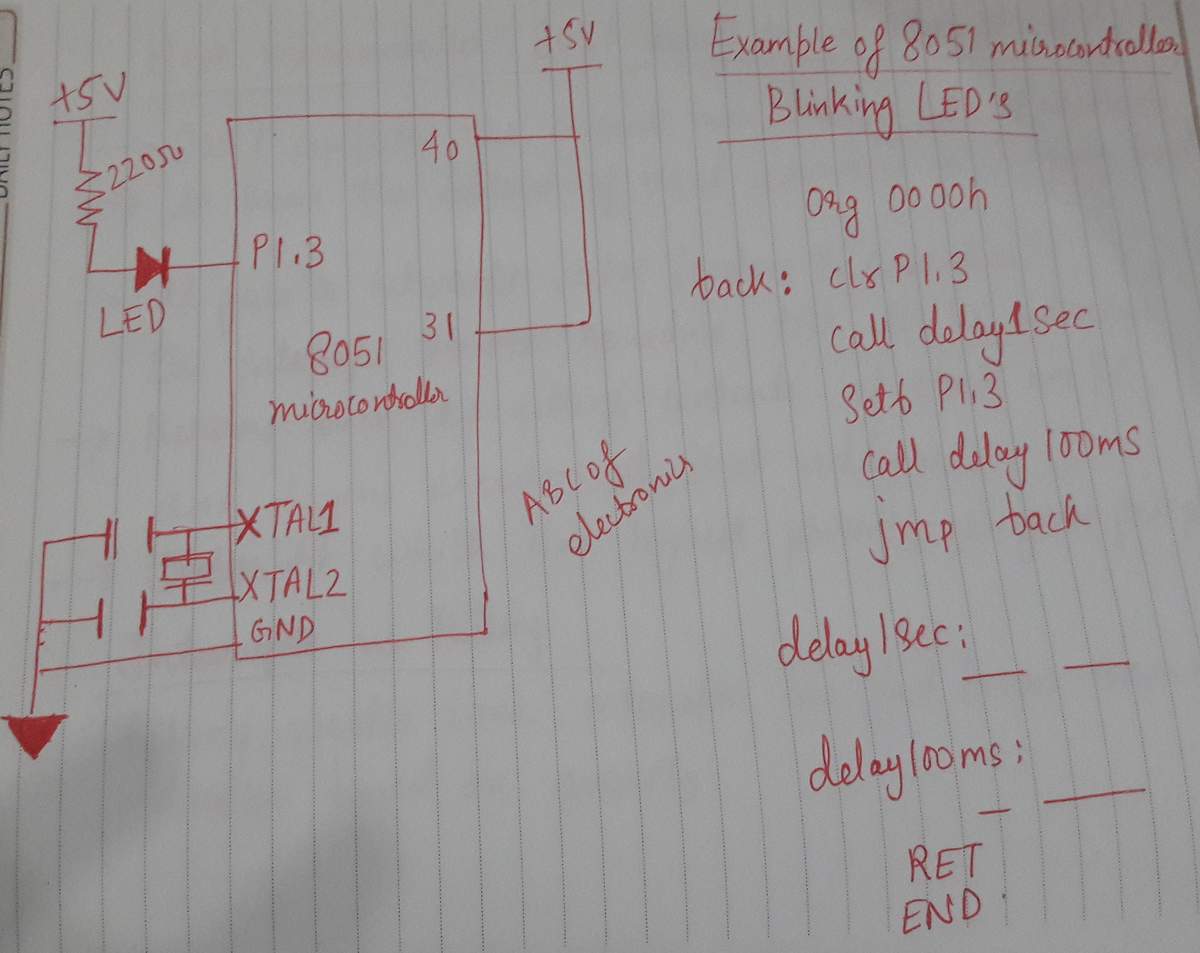 DAILY NOTES
+5V
+5V
220Ω
40
P1.3
LED
31
8051
microcontroller
XTAL1
XTAL2
GND
ABC of
electronics
Example of 8051 microcontroller
Blinking LED's
Org 0000h
back: clr P1.3
call delay1sec
Setb P1.3
call delay 100ms
jmp back
delay1sec:
delay100ms:
RET
END